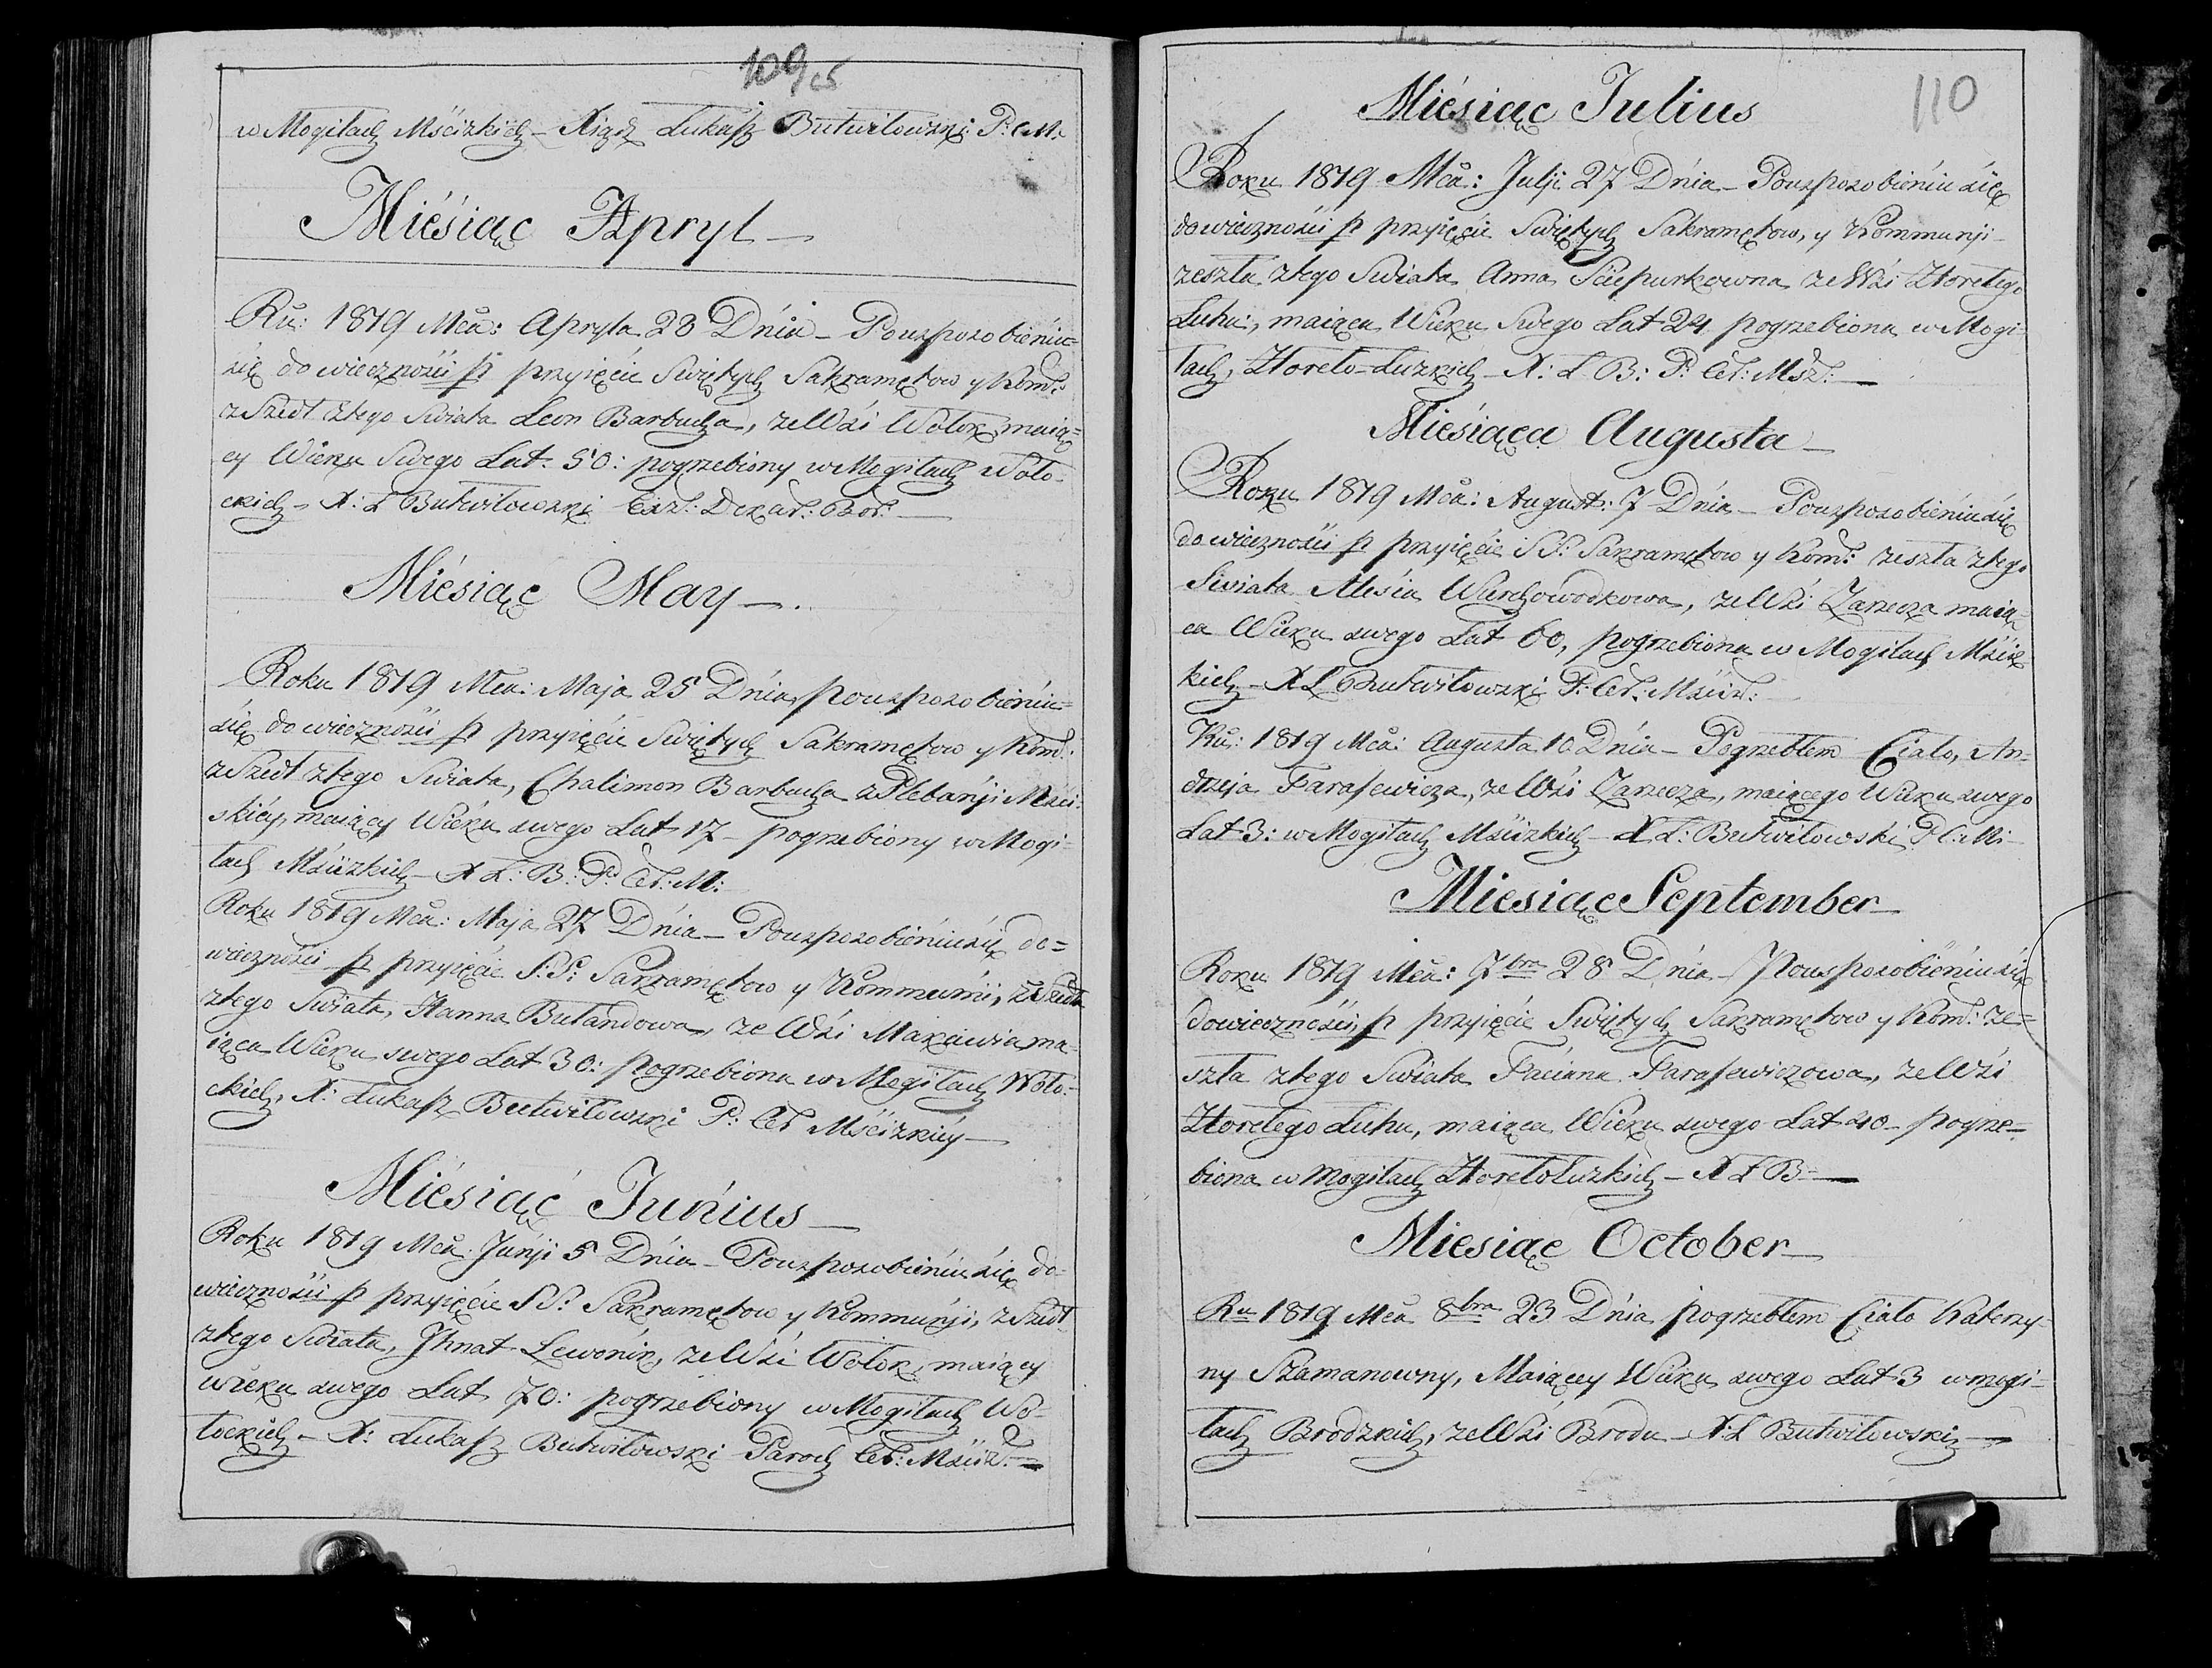 109 c5
w Mogiłach Mścizkich – Xiądz Łukasz Butwiłowski P: C M:
Miésiąc Apryl –
Ru: 1819 Mca: Apryla 28 Dnia – Pousposobieniu=
się do wieczności p przyięcie Swiętych Sakramętow y Kom:
zszedł ztego Swiata Leon Barbucha, zeWsi Wołok maią=
cy Wieku Swego Lat. 50: pogrzebiony w Mogiłach Woło-
ckich – X: Ł Butwiłowski
Miésiąc May –
Roku 1819 Mca: Maja 25 Dnia, pousposobieniu=
się do wieczności p przyięcie Swiętych Sakramętow y Kom:
zszedł ztego Swiata, Chalimon Barbucha z Plebanji Mści-
skiéy, maiący Wiéku swego Lat 17 – pogrzebiony w Mogi=
łach Mścizkich – X Ł: B: P: Cer: M:
Roku 1819 Mca: Maja 27 Dnia – Pousposobieniu się do=
wieczności p przyięcie S: S: Sakramętow y Kommunii, zszedła
ztego Swiata, Hanna Bułandowa, ze Wsi Makawia ma-
iąca Wieku swego Lat 30: pogrzebiona w Mogiłach Woło-
ckich, X: Łukasz Butwiłowski P: Cer Mścizkiéy –
Miésiąc Junius –
Roku 1819 Mca: Junji 5 Dnia – Pousposobieniu się do-
wieczności p przyięcie S S: Sakramętow y Kommunji, zszedł
ztego Swiata, Jhnat Lewonik, zeWsi Wołok, maiący
wieku swego Lat 70: pogrzebiony w Mogiłach Wo-
łockich – X: Łukasz Butwiłowski Paroch Cer: Mściz: –
110
Miésiąc Julius
Roku 1819 Mca: Julji 27 Dnia – Pousposobieniu się
do wieczności p przyięcie Swiętych Sakramętow, y Kommunji –
zeszła ztego Swiata Anna Sciepurkowna zeWsi Horełego
Łuhu, maiąca Wieku Swego Lat 24 pogrzebiona w Mogi-
łach, Horeło-Łuzkich – X: Ł B: P: Cer: Msz: –
Miésiąca Augusta –
Roku 1819 Mca: August: 7 Dnia – Pousposobieniu się
do wieczności p przyięcie S S: Sakramętow y Kom: zeszła ztego
Swiata Alesia Wierchowodkowa, zeWsi Zarzecza maią-
ca Wieku swego Lat 60, pogrzebiona w Mogiłach Mściz-
kich – X Ł Butwiłowski P: Cer: Mściz:
Ru: 1819 Mca: Augusta 10 Dnia – Pogrzebłem Ciało, An-
drzeja Tarasewicza, zeWsi Zarzecza, maiącego Wieku swego
Lat 3: w Mogiłach Mścizkich – X Ł: Butwiłowski P C: M: –
Miesiąc September –
Roku 1819 Mca: 7bra 28 Dnia – Pousposobieniu się
dowieczności, p przyięcie Swiętych Sakramętow y Kom: ze=
szła ztego Swiata Taciana Tarasewiczowa, zeWsi
Horełego Łuhu, maiąca Wiéku swego Lat 40 – pogrze=
biona w Mogiłach Horełołuzkich – X Ł B – –
Miesiąc October –
Ru 1819 Mca 8bra 23 Dnia pogrzebłem Ciało Katerzy-
ny Szamanowny, Maiącey Wieku swego Lat 3 w mogi-
łach Brodzkich, zeWsi Brodu – X: Ł Butwiłowski –